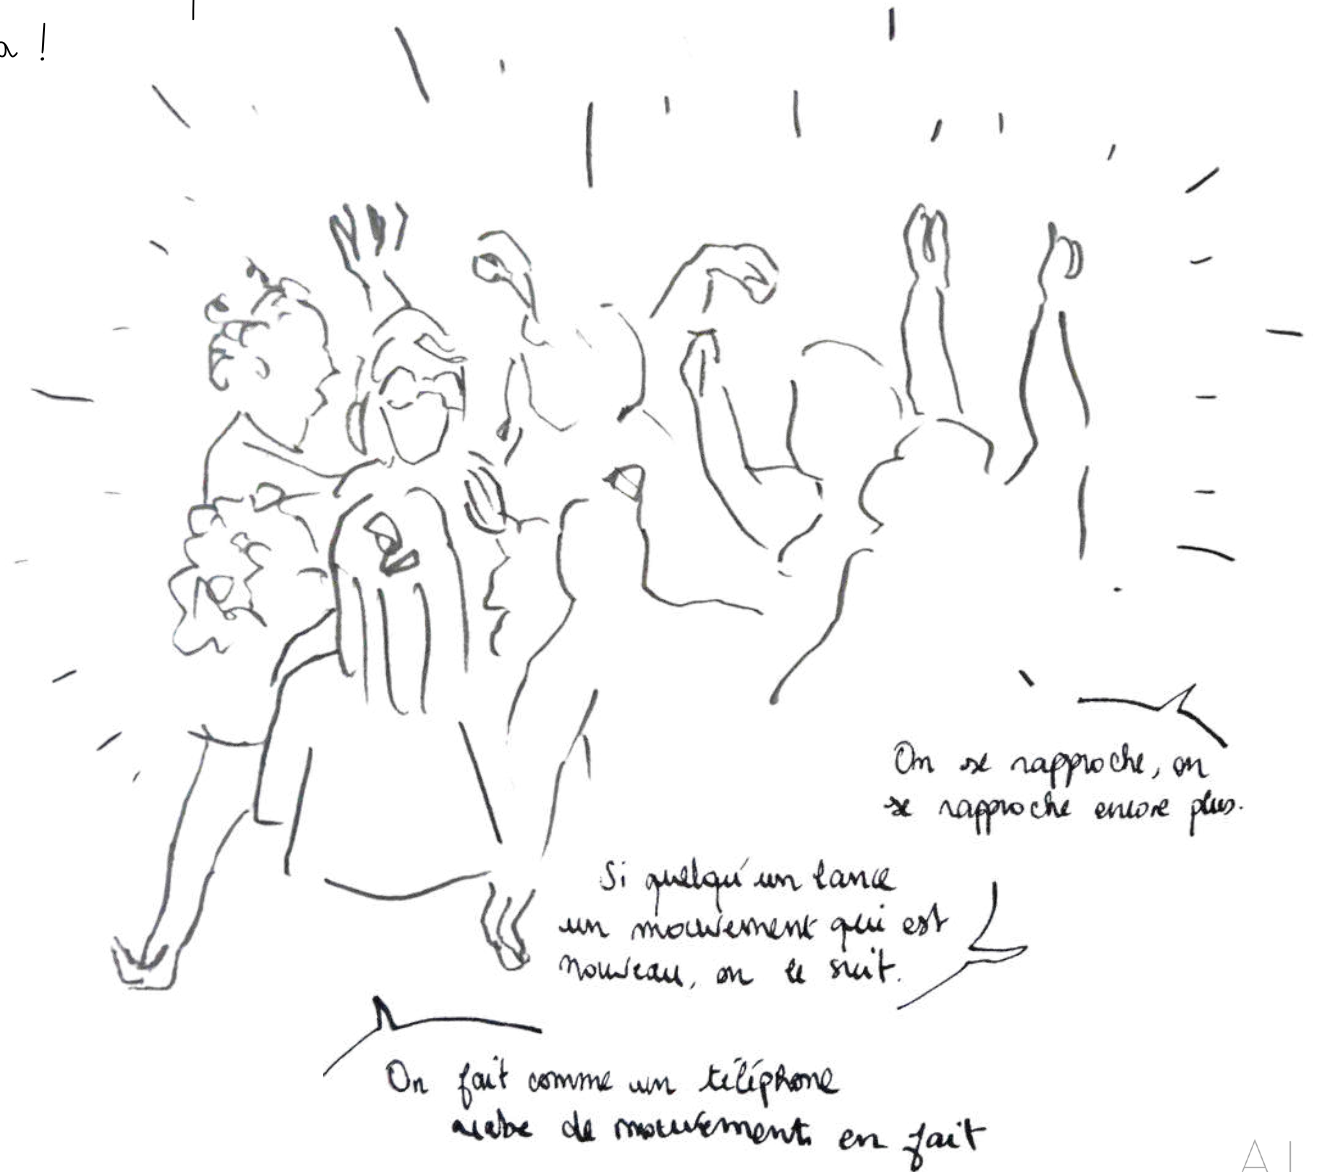 a !
On se rapproche, on
se rapproche encore plus.
Si quelqu'un lance
un mouvement qui est
nouveau, on le suit.
On fait comme un téléphone
arabe de mouvements en fait